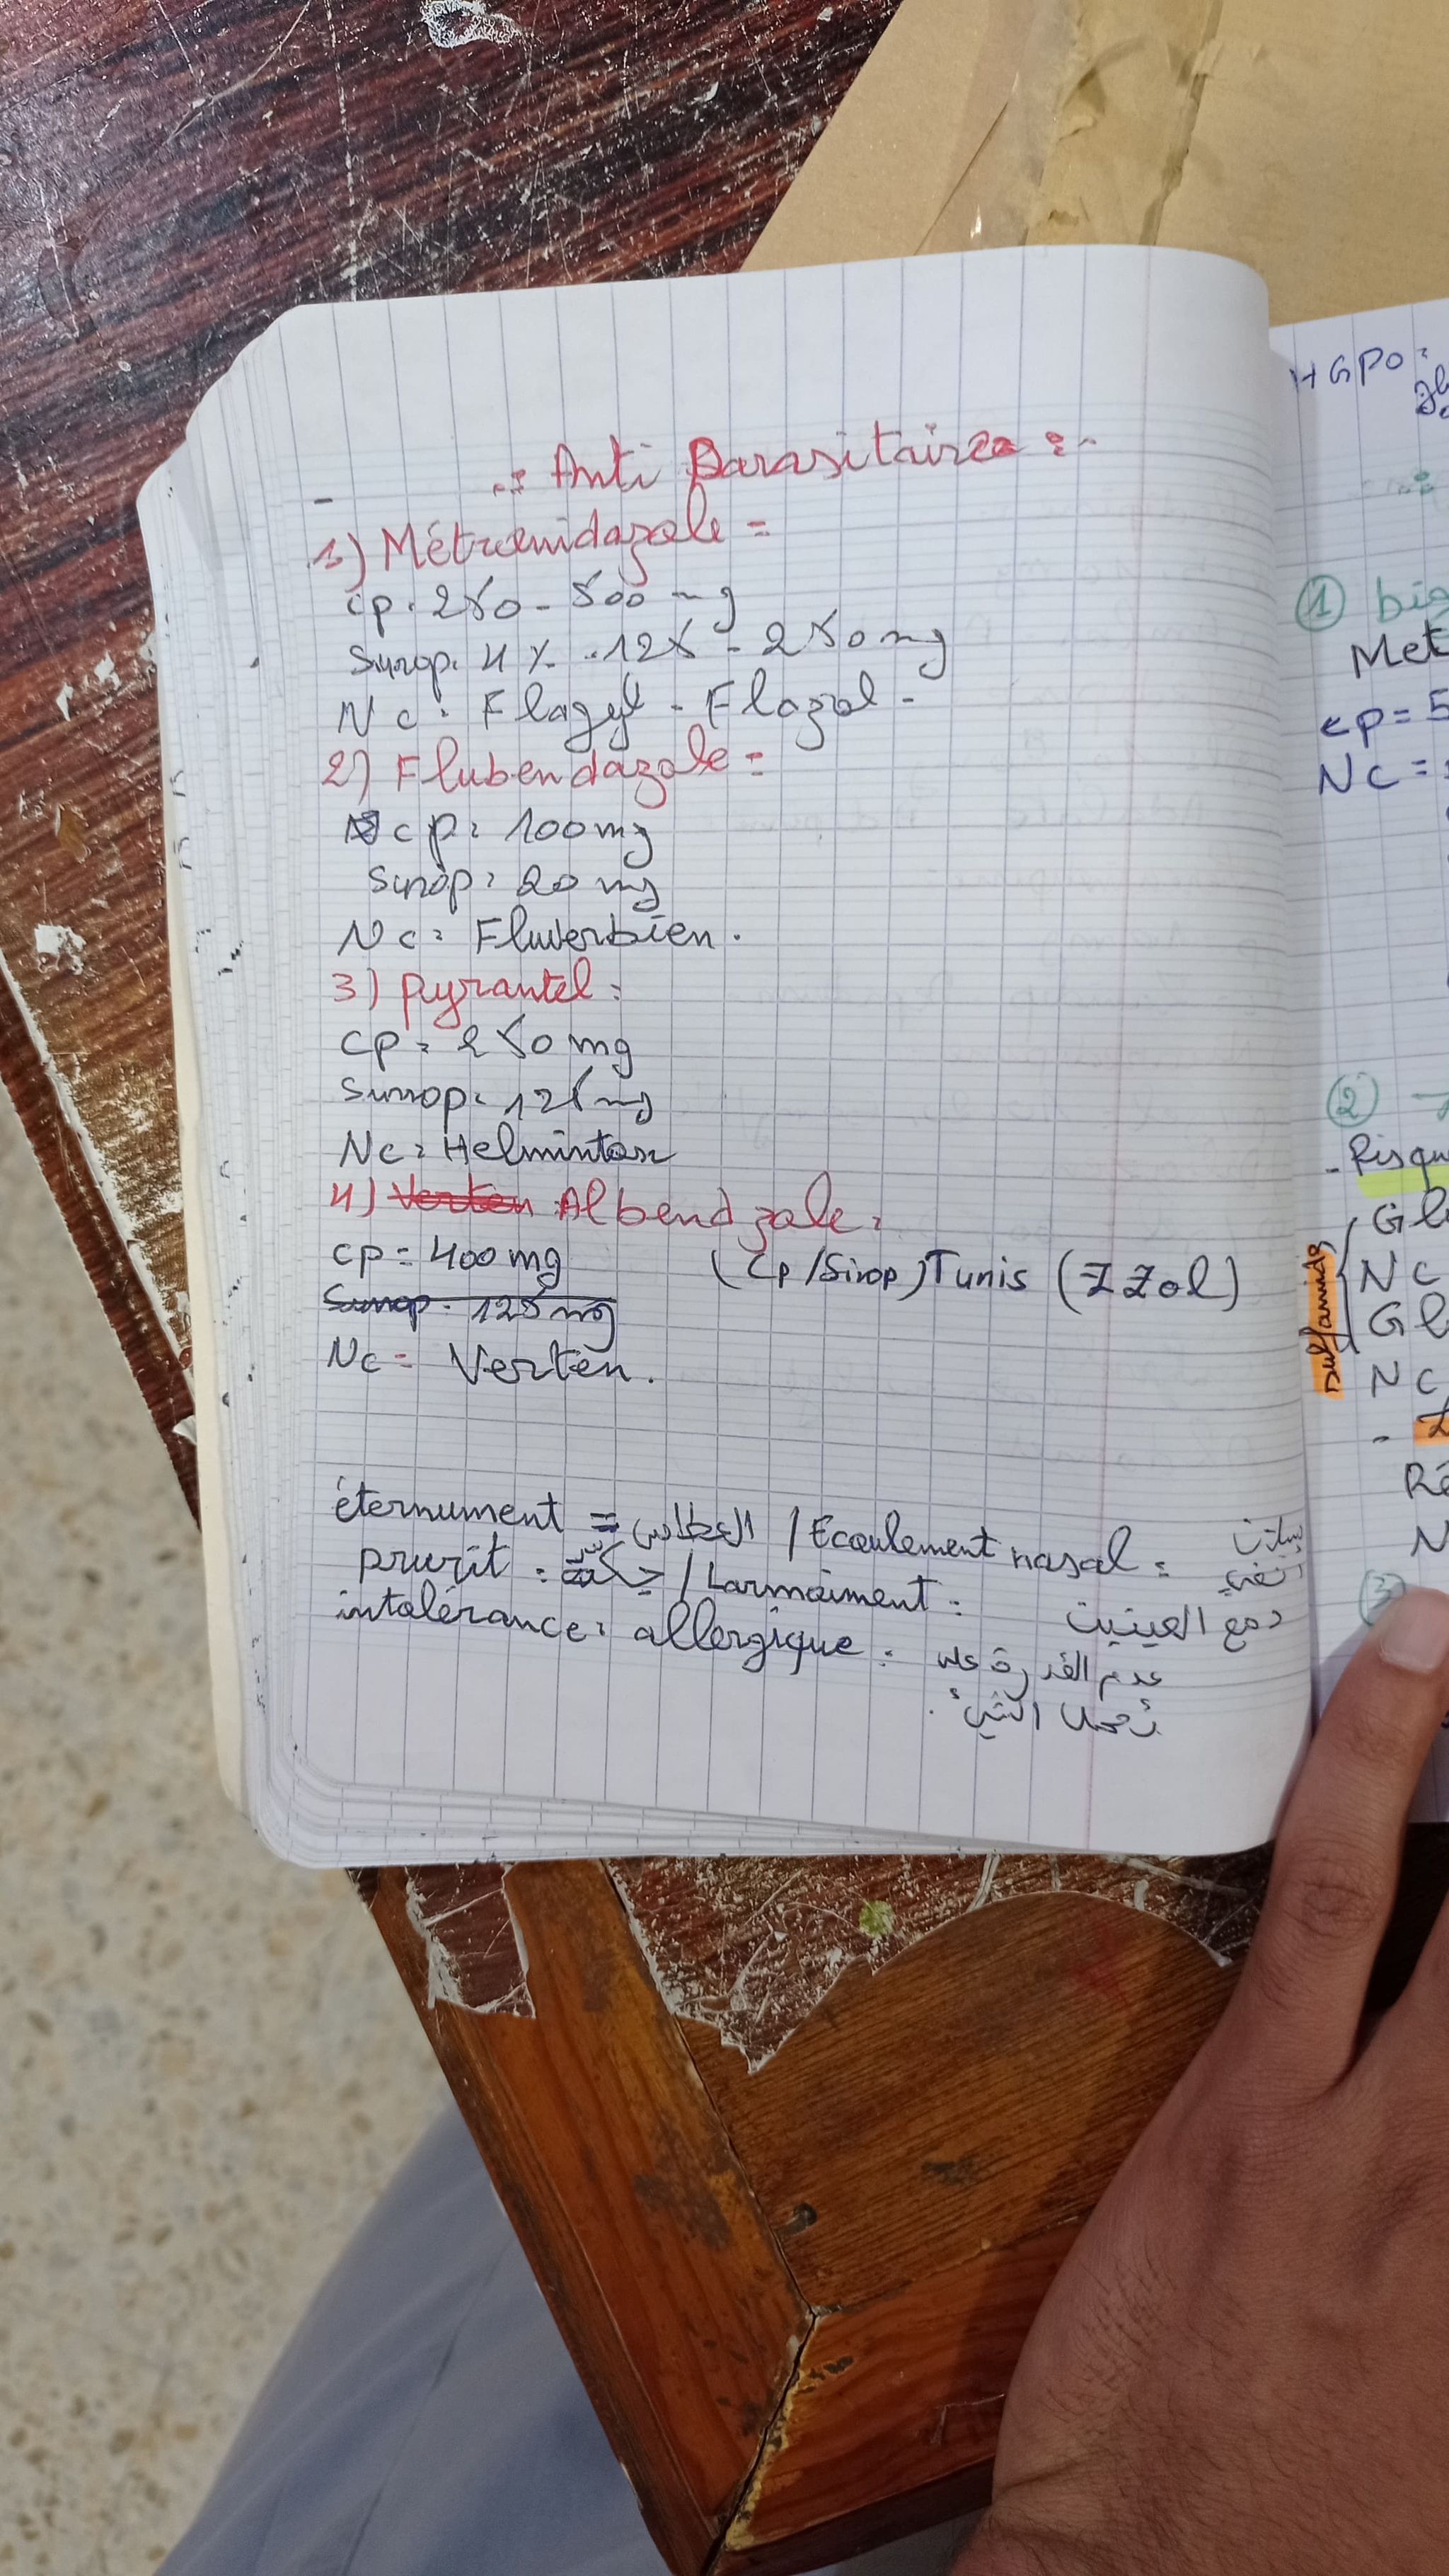 Anti Parasitaire :
1) Métronidazole =
cp. 250 - 500 mg
Surop. 4% - 125 - 250 mg
Nc : Flagyl - Flazol -
2) Flubendazole =
cp : 100 mg
Surop : 20 mg
Nc : Fluverbien.
3) pyrantel :
cp : 250 mg
Surrop : 125 mg
Nc : Helmintox
4) Verten Albendzale :
cp = 400 mg (Cp/Sirop) Tunis (ZZol)
Surrop - 125 mg
Nc = Verten.
éternument = العطاس / Ecoulement nasal : سيلان انفي
prurit : حكة / Larmoiment : دمع العينين
intolérance : allergique : عدم القدرة على
تحمل الشيئ.
HGPO :
① big
Met
cp = 5
Nc =
②
- Risqu
Gl
Nc
Gl
Nc
Sulfamide
Ré
N
③